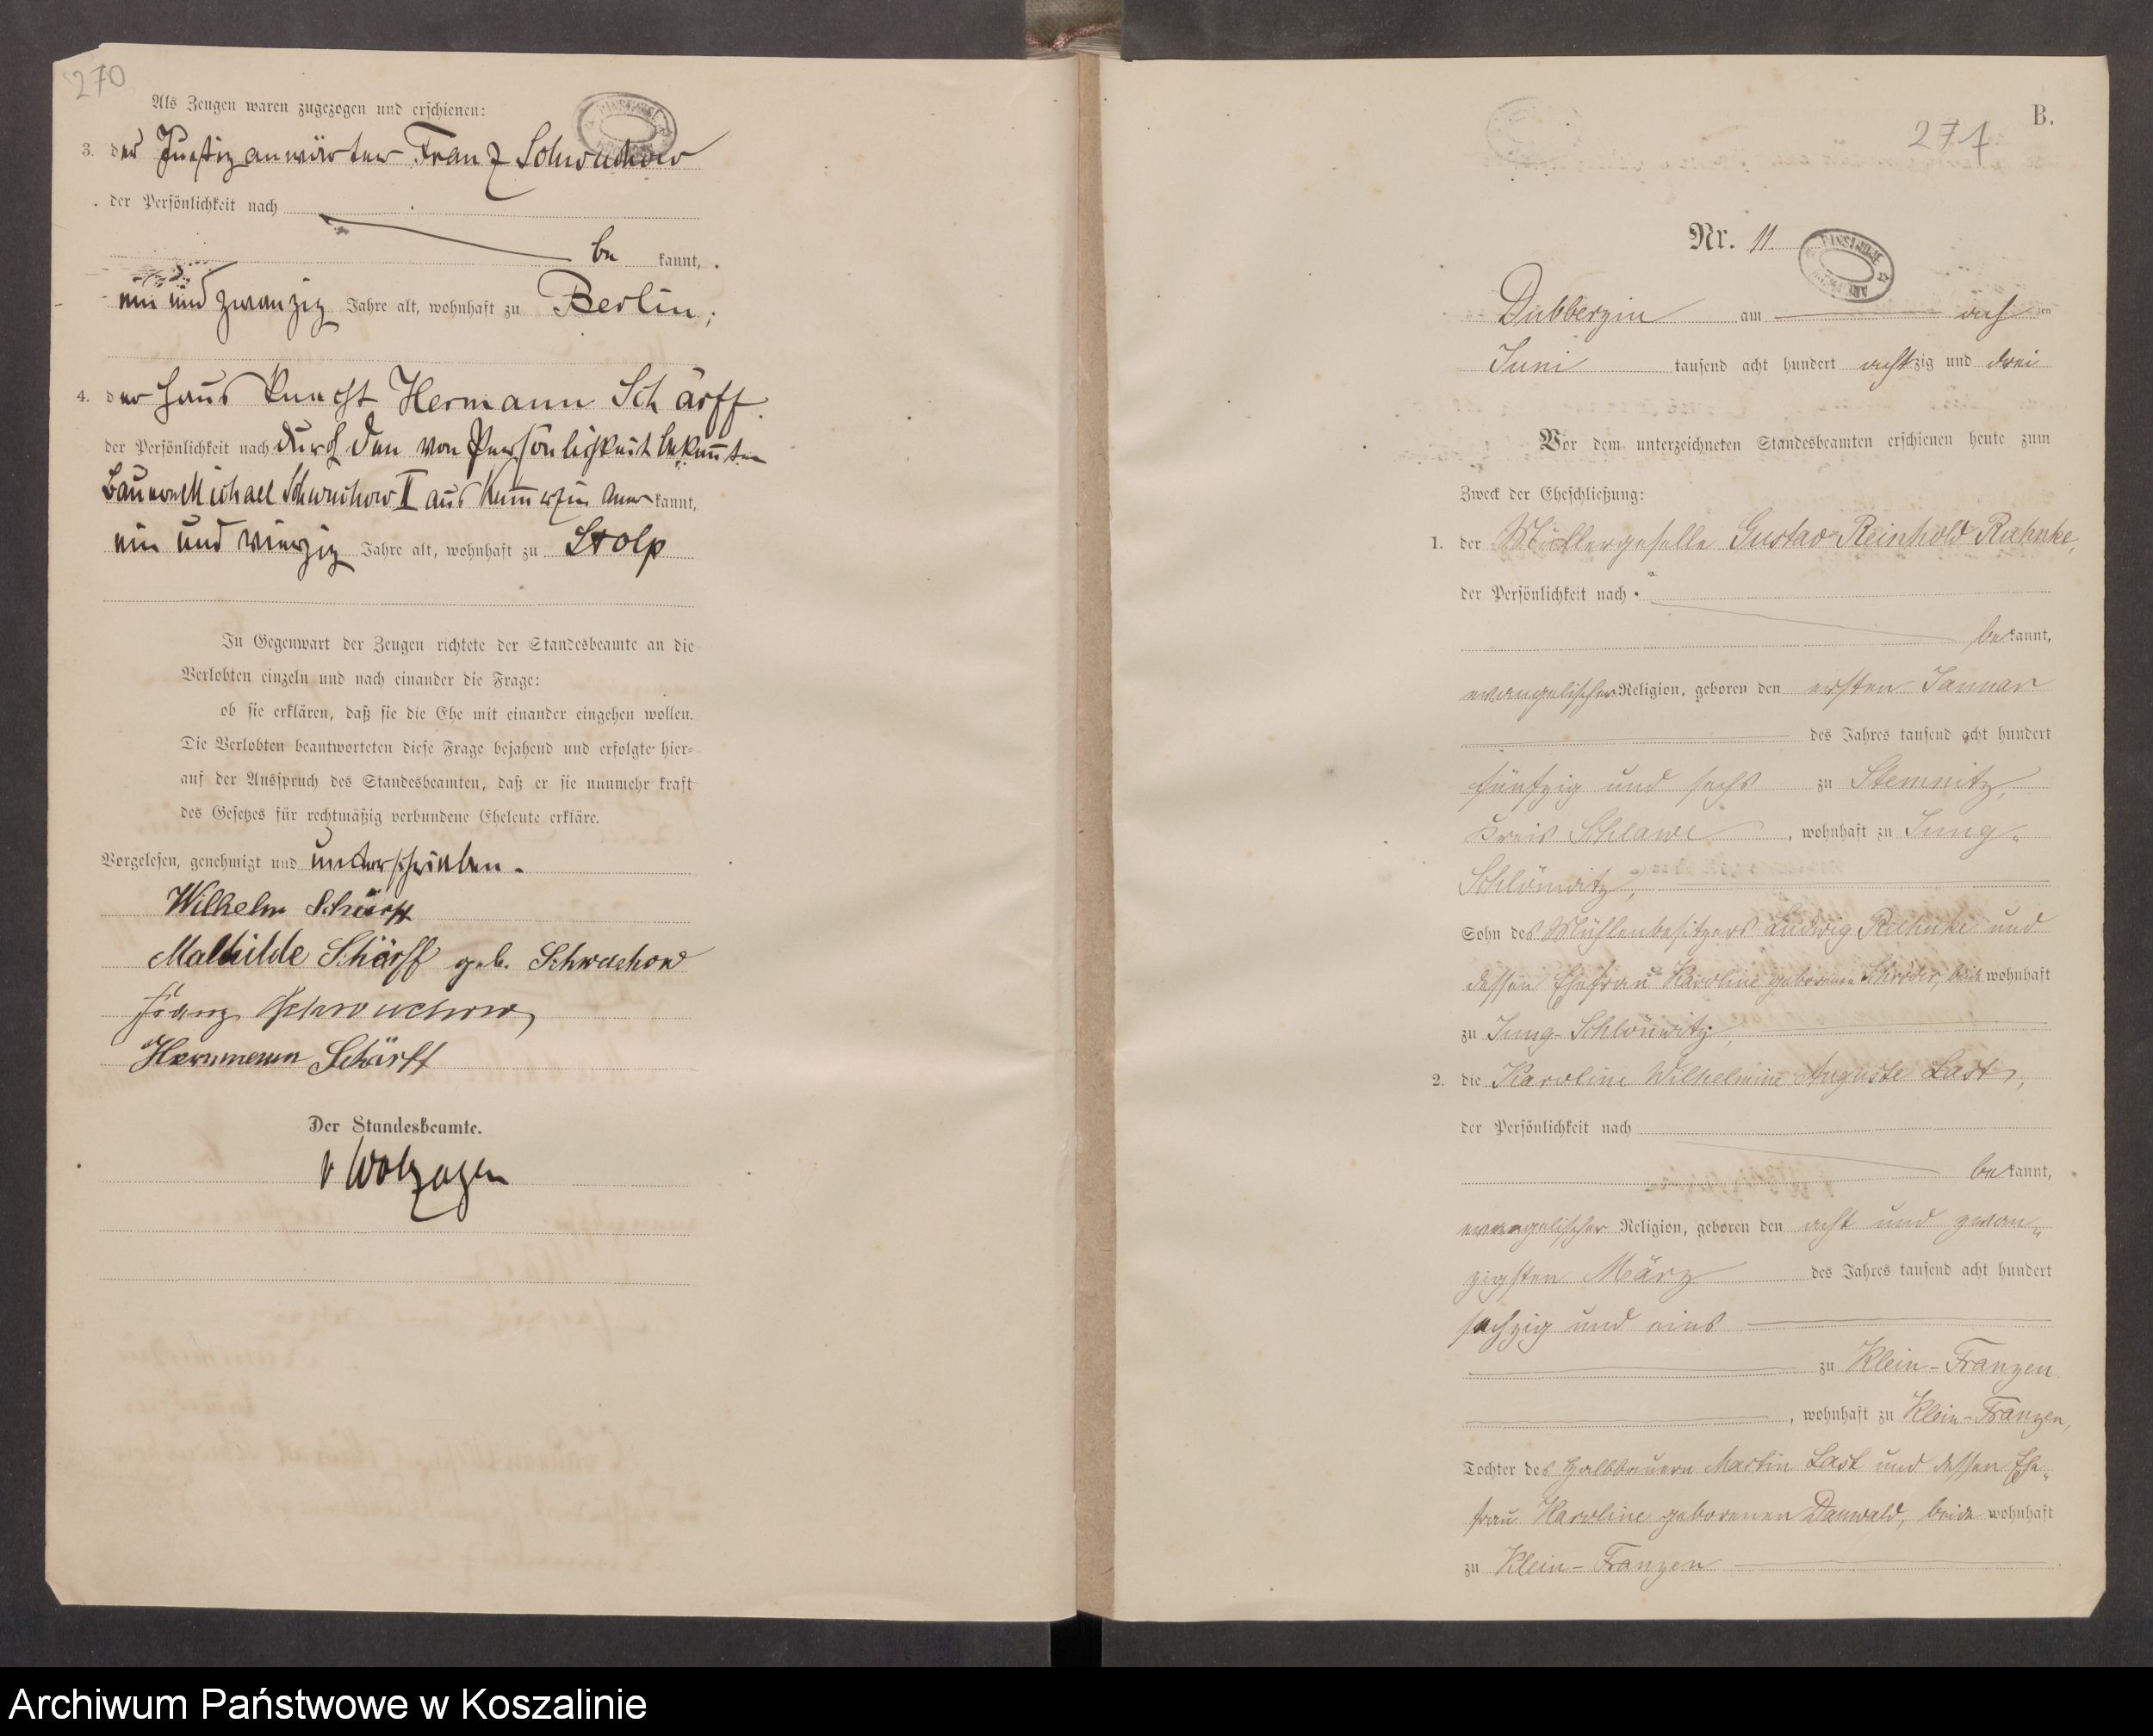 270
Als Zeugen waren zugezogen und erschienen:
3. der Justizanwärter Franz Schwuchow
der Persönlichkeit nach
be kannt,
ein und zwanzig Jahre alt, wohnhaft zu Berlin;
4. der Hausknecht Hermann Schärff
der Persönlichkeit nach durch den von Persönlichkeit bekannten
Bauern Michael Schwuchow II aus Kummerzin aner kannt,
ein und vierzig Jahre alt, wohnhaft zu Stolp
In Gegenwart der Zeugen richtete der Standesbeamte an die
Verlobten einzeln und nach einander die Frage:
ob sie erklären, daß sie die Ehe mit einander eingehen wollen.
Die Verlobten beantworteten diese Frage bejahend und erfolgte hier-
auf der Ausspruch des Standesbeamten, daß er sie nunmehr kraft
des Gesetzes für rechtmäßig verbundene Eheleute erkläre.
Vorgelesen, genehmigt und unterschrieben.
Wilhelm Schärff
Mathilde Schärff geb. Schwuchow
Franz Schwuchow
Hermann Schärff
Der Standesbeamte.
v Wolzogen
B.
271
Nr. 11
Dübbergin am acht ten
Juni tausend acht hundert achtzig und drei
Vor dem unterzeichneten Standesbeamten erschienen heute zum
Zweck der Eheschließung:
1. der Müllergeselle Gustav Reinhold Rahnke,
der Persönlichkeit nach
be kannt,
evangelischer Religion, geboren den ersten Januar
des Jahres tausend acht hundert
fünfzig und sechs zu Stemnitz,
Kreis Schlawe, wohnhaft zu Jung-
Schlönwitz,
Sohn des Mühlenbesitzers Ludwig Rahnke und
dessen Ehefrau Karoline geborenen Schröder, beide wohnhaft
zu Jung-Schlönwitz,
2. die Karoline Wilhelmine Auguste Last,
der Persönlichkeit nach
be kannt,
evangelischer Religion, geboren den acht und zwan-
zigsten März des Jahres tausend acht hundert
sechzig und eins
zu Klein-Franzen
, wohnhaft zu Klein-Franzen,
Tochter des Halbbauern Martin Last und dessen Ehe-
frau Karoline geborenen Danwald, beide wohnhaft
zu Klein-Franzen
Archiwum Państwowe w Koszalinie